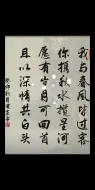 我与春风皆过客
你携秋水揽星河
愿有岁月可回首
且以深情共白头